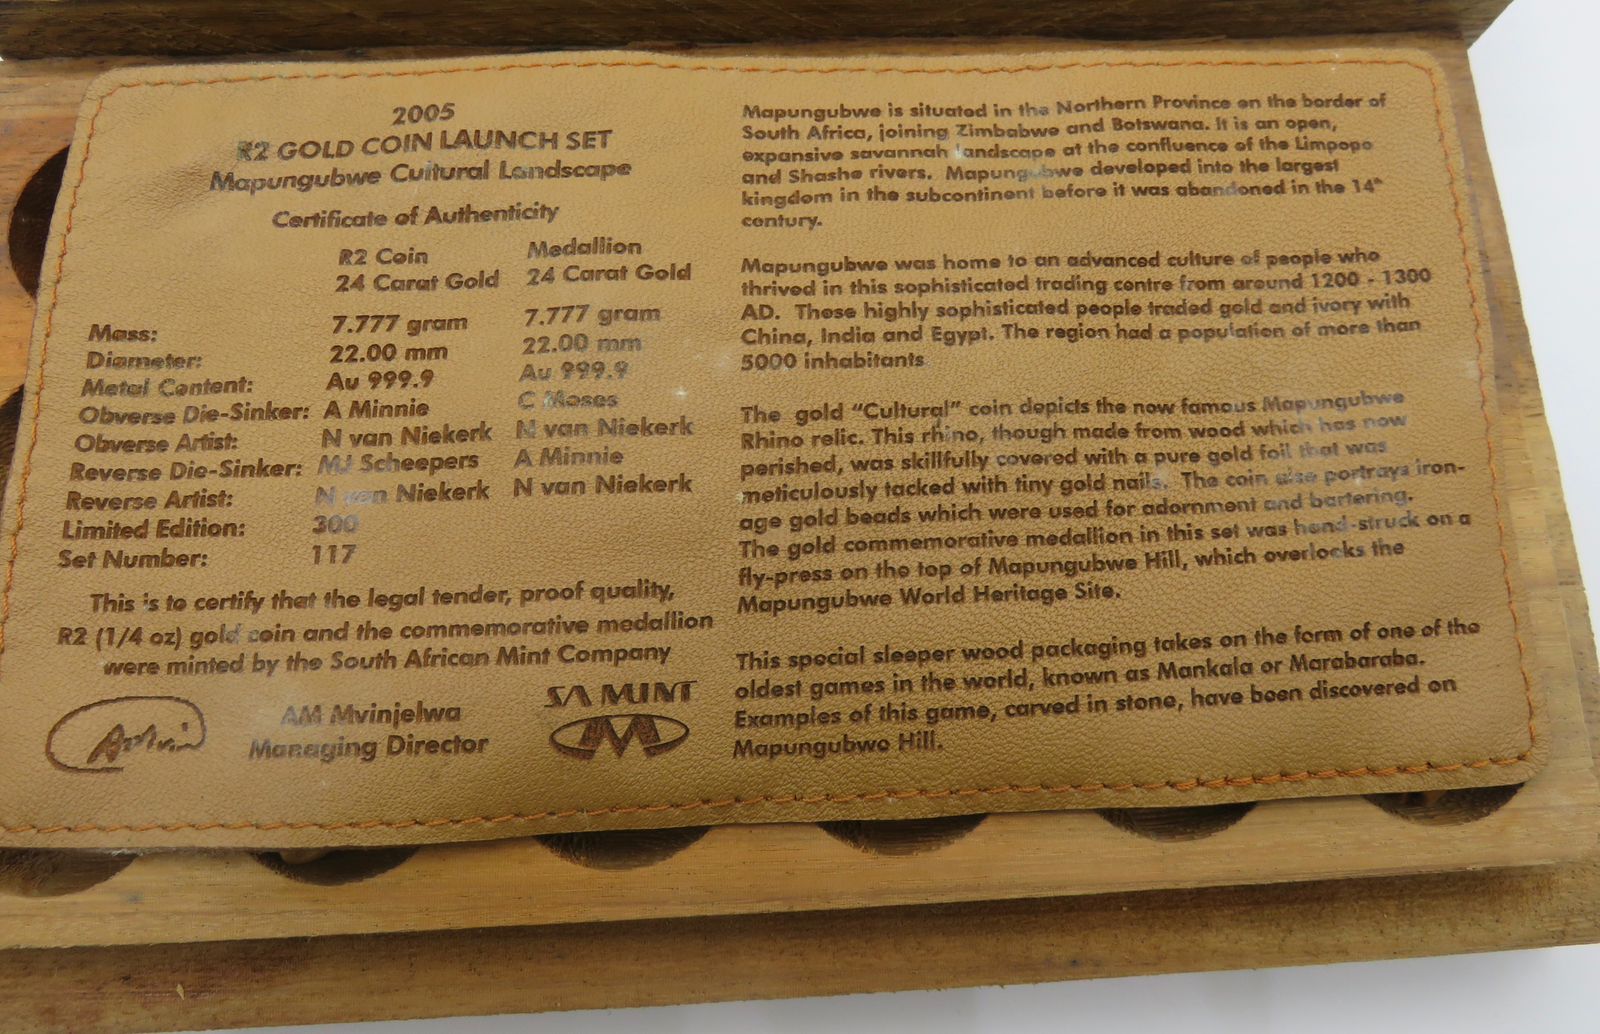 2005
R2 GOLD COIN LAUNCH SET
Mapungubwe Cultural Landscape
Certificate of Authenticity
R2 Coin Medallion
24 Carat Gold 24 Carat Gold
Mass: 7.777 gram 7.777 gram
Diameter: 22.00 mm 22.00 mm
Metal Content: Au 999.9 Au 999.9
Obverse Die-Sinker: A Minnie C Moses
Obverse Artist: N van Niekerk N van Niekerk
Reverse Die-Sinker: MJ Scheepers A Minnie
Reverse Artist: N van Niekerk N van Niekerk
Limited Edition: 300
Set Number: 117
This is to certify that the legal tender, proof quality,
R2 (1/4 oz) gold coin and the commemorative medallion
were minted by the South African Mint Company
AM Mvinjelwa
Managing Director
SA MINT
Mapungubwe is situated in the Northern Province on the border of
South Africa, joining Zimbabwe and Botswana. It is an open,
expansive savannah landscape at the confluence of the Limpopo
and Shashe rivers. Mapungubwe developed into the largest
kingdom in the subcontinent before it was abandoned in the 14th
century.
Mapungubwe was home to an advanced culture of people who
thrived in this sophisticated trading centre from around 1200 - 1300
AD. These highly sophisticated people traded gold and ivory with
China, India and Egypt. The region had a population of more than
5000 inhabitants
The gold "Cultural" coin depicts the now famous Mapungubwe
Rhino relic. This rhino, though made from wood which has now
perished, was skillfully covered with a pure gold foil that was
meticulously tacked with tiny gold nails. The coin also portrays iron-
age gold beads which were used for adornment and bartering.
The gold commemorative medallion in this set was hand-struck on a
fly-press on the top of Mapungubwe Hill, which overlooks the
Mapungubwe World Heritage Site.
This special sleeper wood packaging takes on the form of one of the
oldest games in the world, known as Mankala or Marabaraba.
Examples of this game, carved in stone, have been discovered on
Mapungubwe Hill.